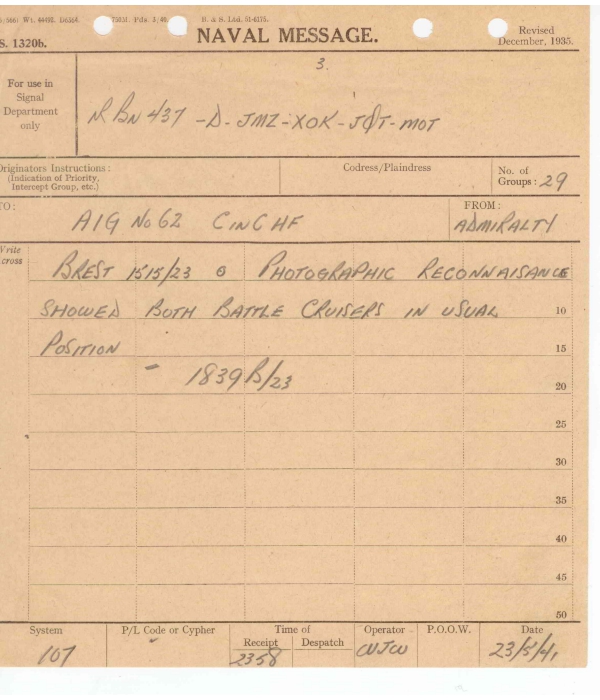 (566) Wt. 44492. D6364. 75031. Pds 3/40. H. & S. Ltd. 51-6175.
S. 1320b.
NAVAL MESSAGE.
Revised
December, 1935.
3.
For use in
Signal
Department
only
N BN 437 - D - JMZ - XOK - JØT - MOT
Originators Instructions:
(Indication of Priority,
Intercept Group, etc.)
Codress/Plaindress
No. of
Groups: 29
TO:
FROM:
AIG No 62 CinC HF
ADMIRALTY
Write
cross
BREST 1515/23 PHOTOGRAPHIC RECONNAISANCE
SHOWED BOTH BATTLE CRUISERS IN USUAL 10
POSITION 15
- 1839B/23 20
25
30
35
40
45
50
System P/L Code or Cypher Time of Operator P.O.O.W. Date
Receipt Despatch
107 2358 WJW 23/5/41